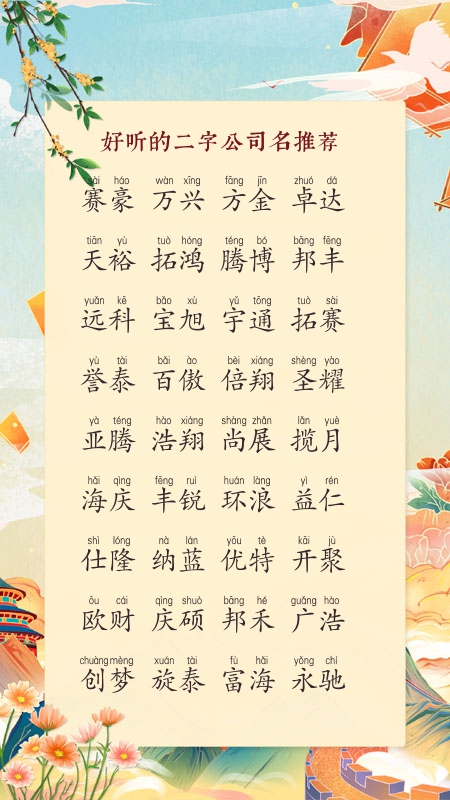 好听的二字公司名推荐
sài háo wàn xīng fāng jīn zhuó dá
赛豪 万兴 方金 卓达
tiān yù tuò hóng téng bó bāng fēng
天裕 拓鸿 腾博 邦丰
yuǎn kē bǎo xù yǔ tōng tuò sài
远科 宝旭 宇通 拓赛
yù tài bǎi ào bèi xiáng shèng yào
誉泰 百傲 倍翔 圣耀
yà téng hào xiáng shàng zhǎn lǎn yuè
亚腾 浩翔 尚展 揽月
hǎi qìng fēng ruì huán làng yì rén
海庆 丰锐 环浪 益仁
shì lóng nà lán yōu tè kāi jù
仕隆 纳蓝 优特 开聚
ōu cái qìng shuò bāng hé guǎng hào
欧财 庆硕 邦禾 广浩
chuàng mèng xuán tài fù hǎi yǒng chí
创梦 旋泰 富海 永驰